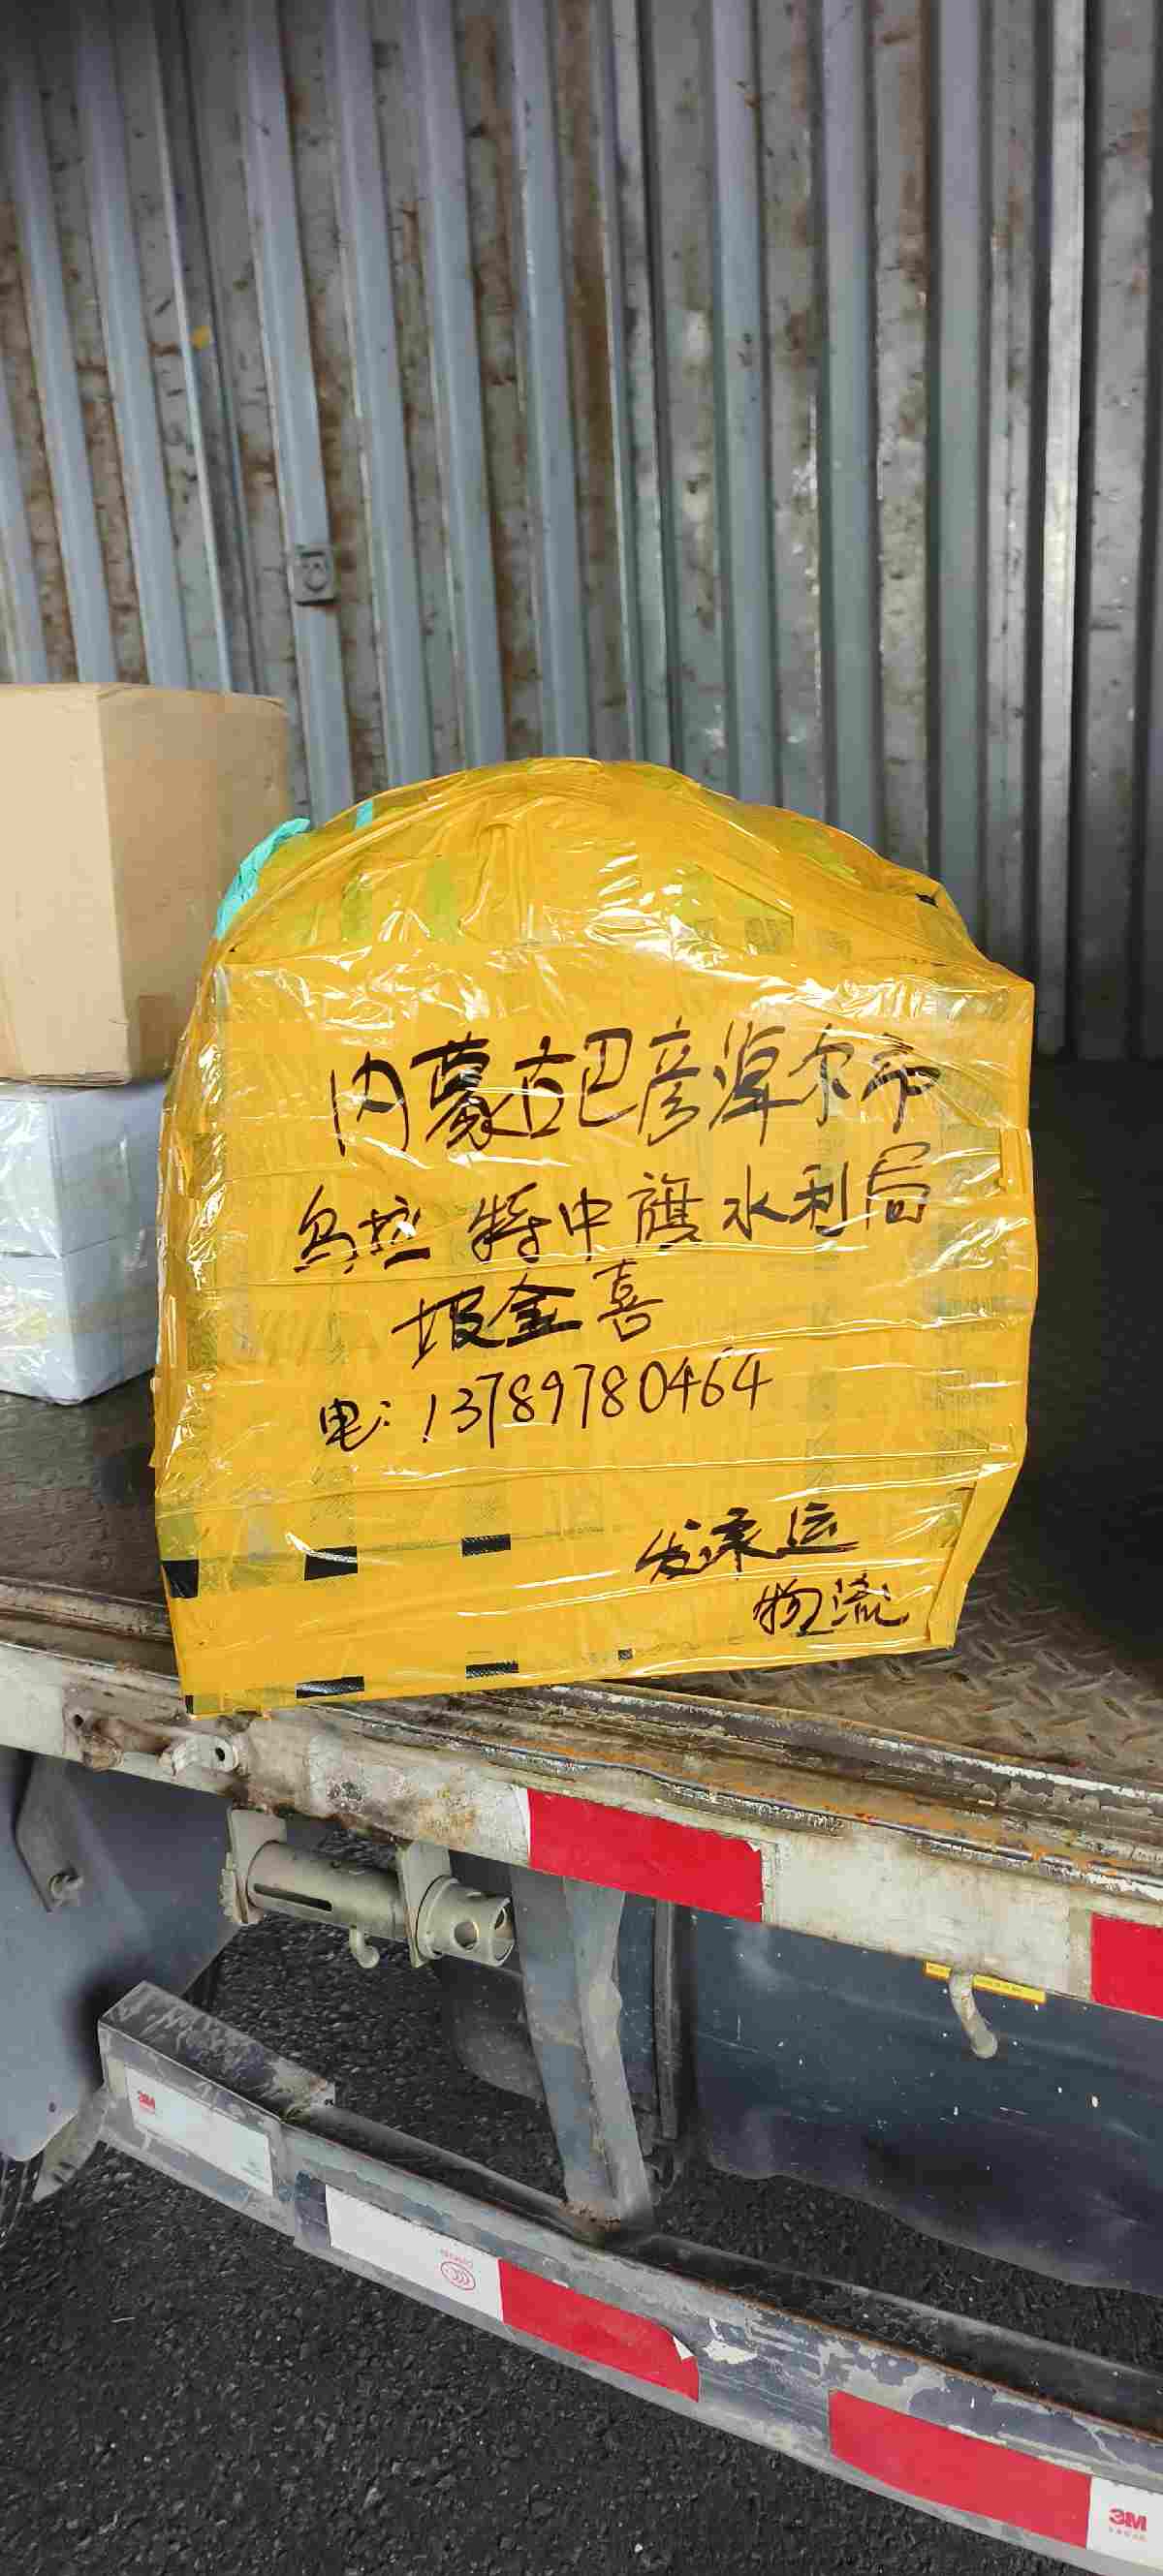 内蒙古巴彦淖尔市
乌拉特中旗水利局
坂金喜
电:13789780464
发乘运
物流
3M
3M